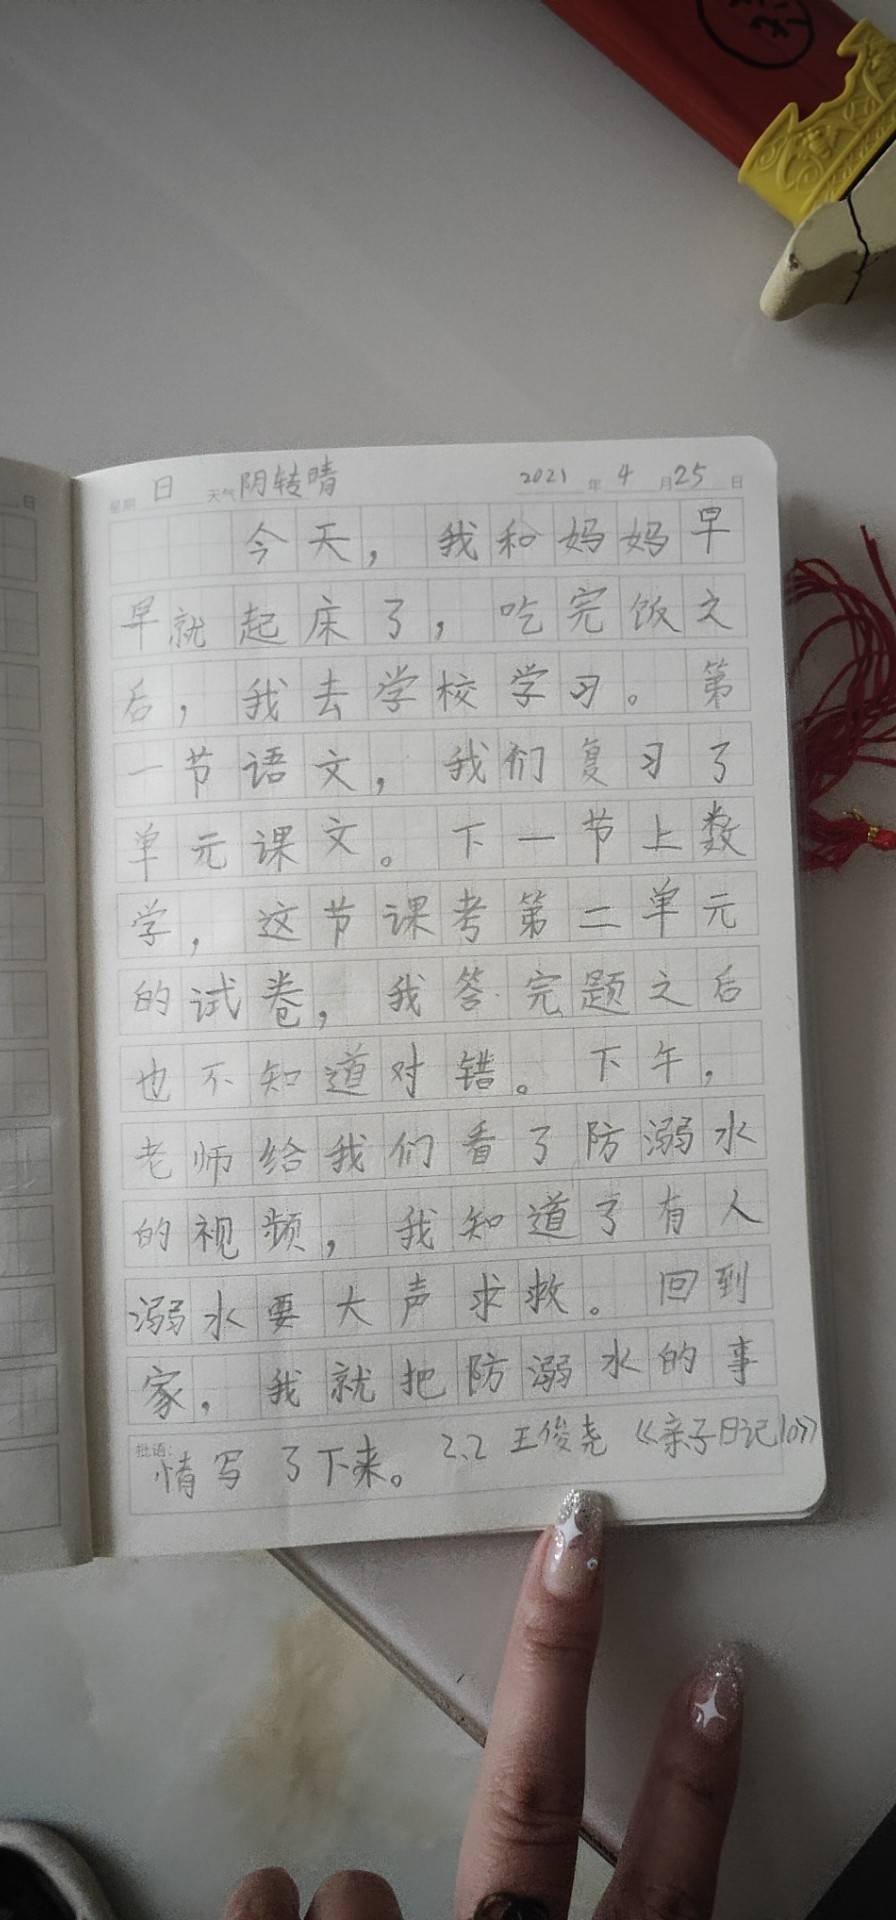 星期 日 天气 阴转晴 2021 年 4 月 25 日
今天，我和妈妈早
早就起床了，吃完饭之
后，我去学校学习。第
一节语文，我们复习了
单元课文。下一节上数
学，这节课考第二单元
的试卷，我答完题之后
也不知道对错。下午，
老师给我们看了防溺水
的视频，我知道了有人
溺水要大声求救。回到
家，我就把防溺水的事
批语：
情写了下来。 2.2 王俊尧《亲子日记107》
日